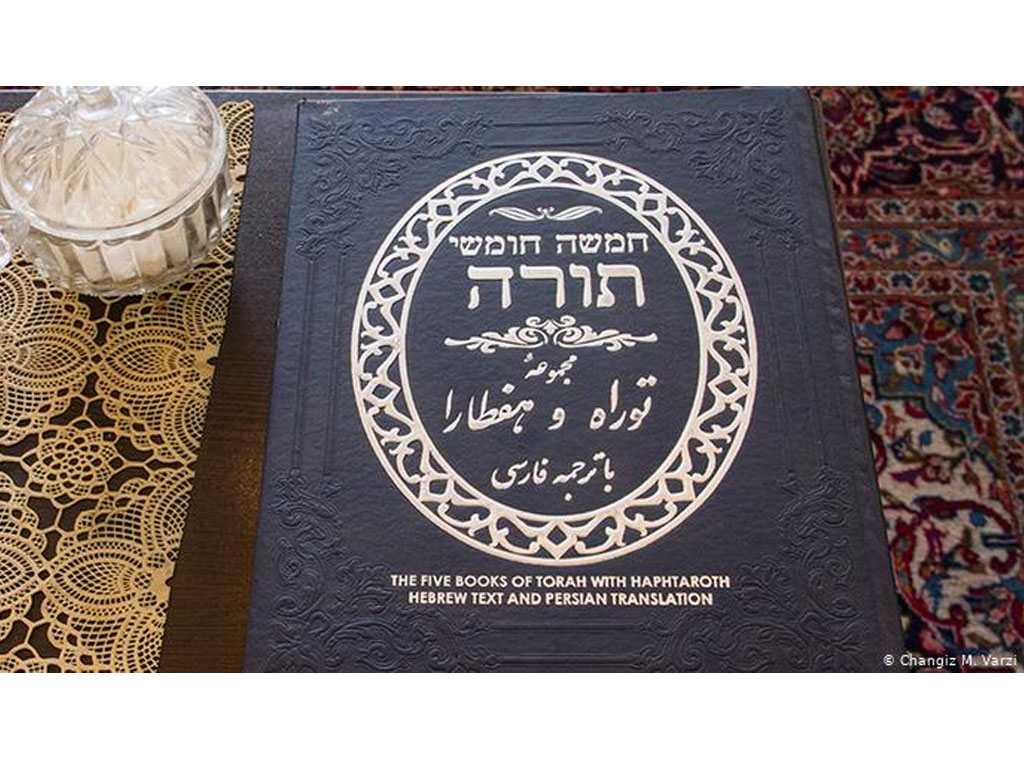 חמשה חומשי
תורה
مجموعهٔ
توراه و هفطارا
با ترجمه فارسی
THE FIVE BOOKS OF TORAH WITH HAPHTAROTH
HEBREW TEXT AND PERSIAN TRANSLATION
© Changiz M. Varzi